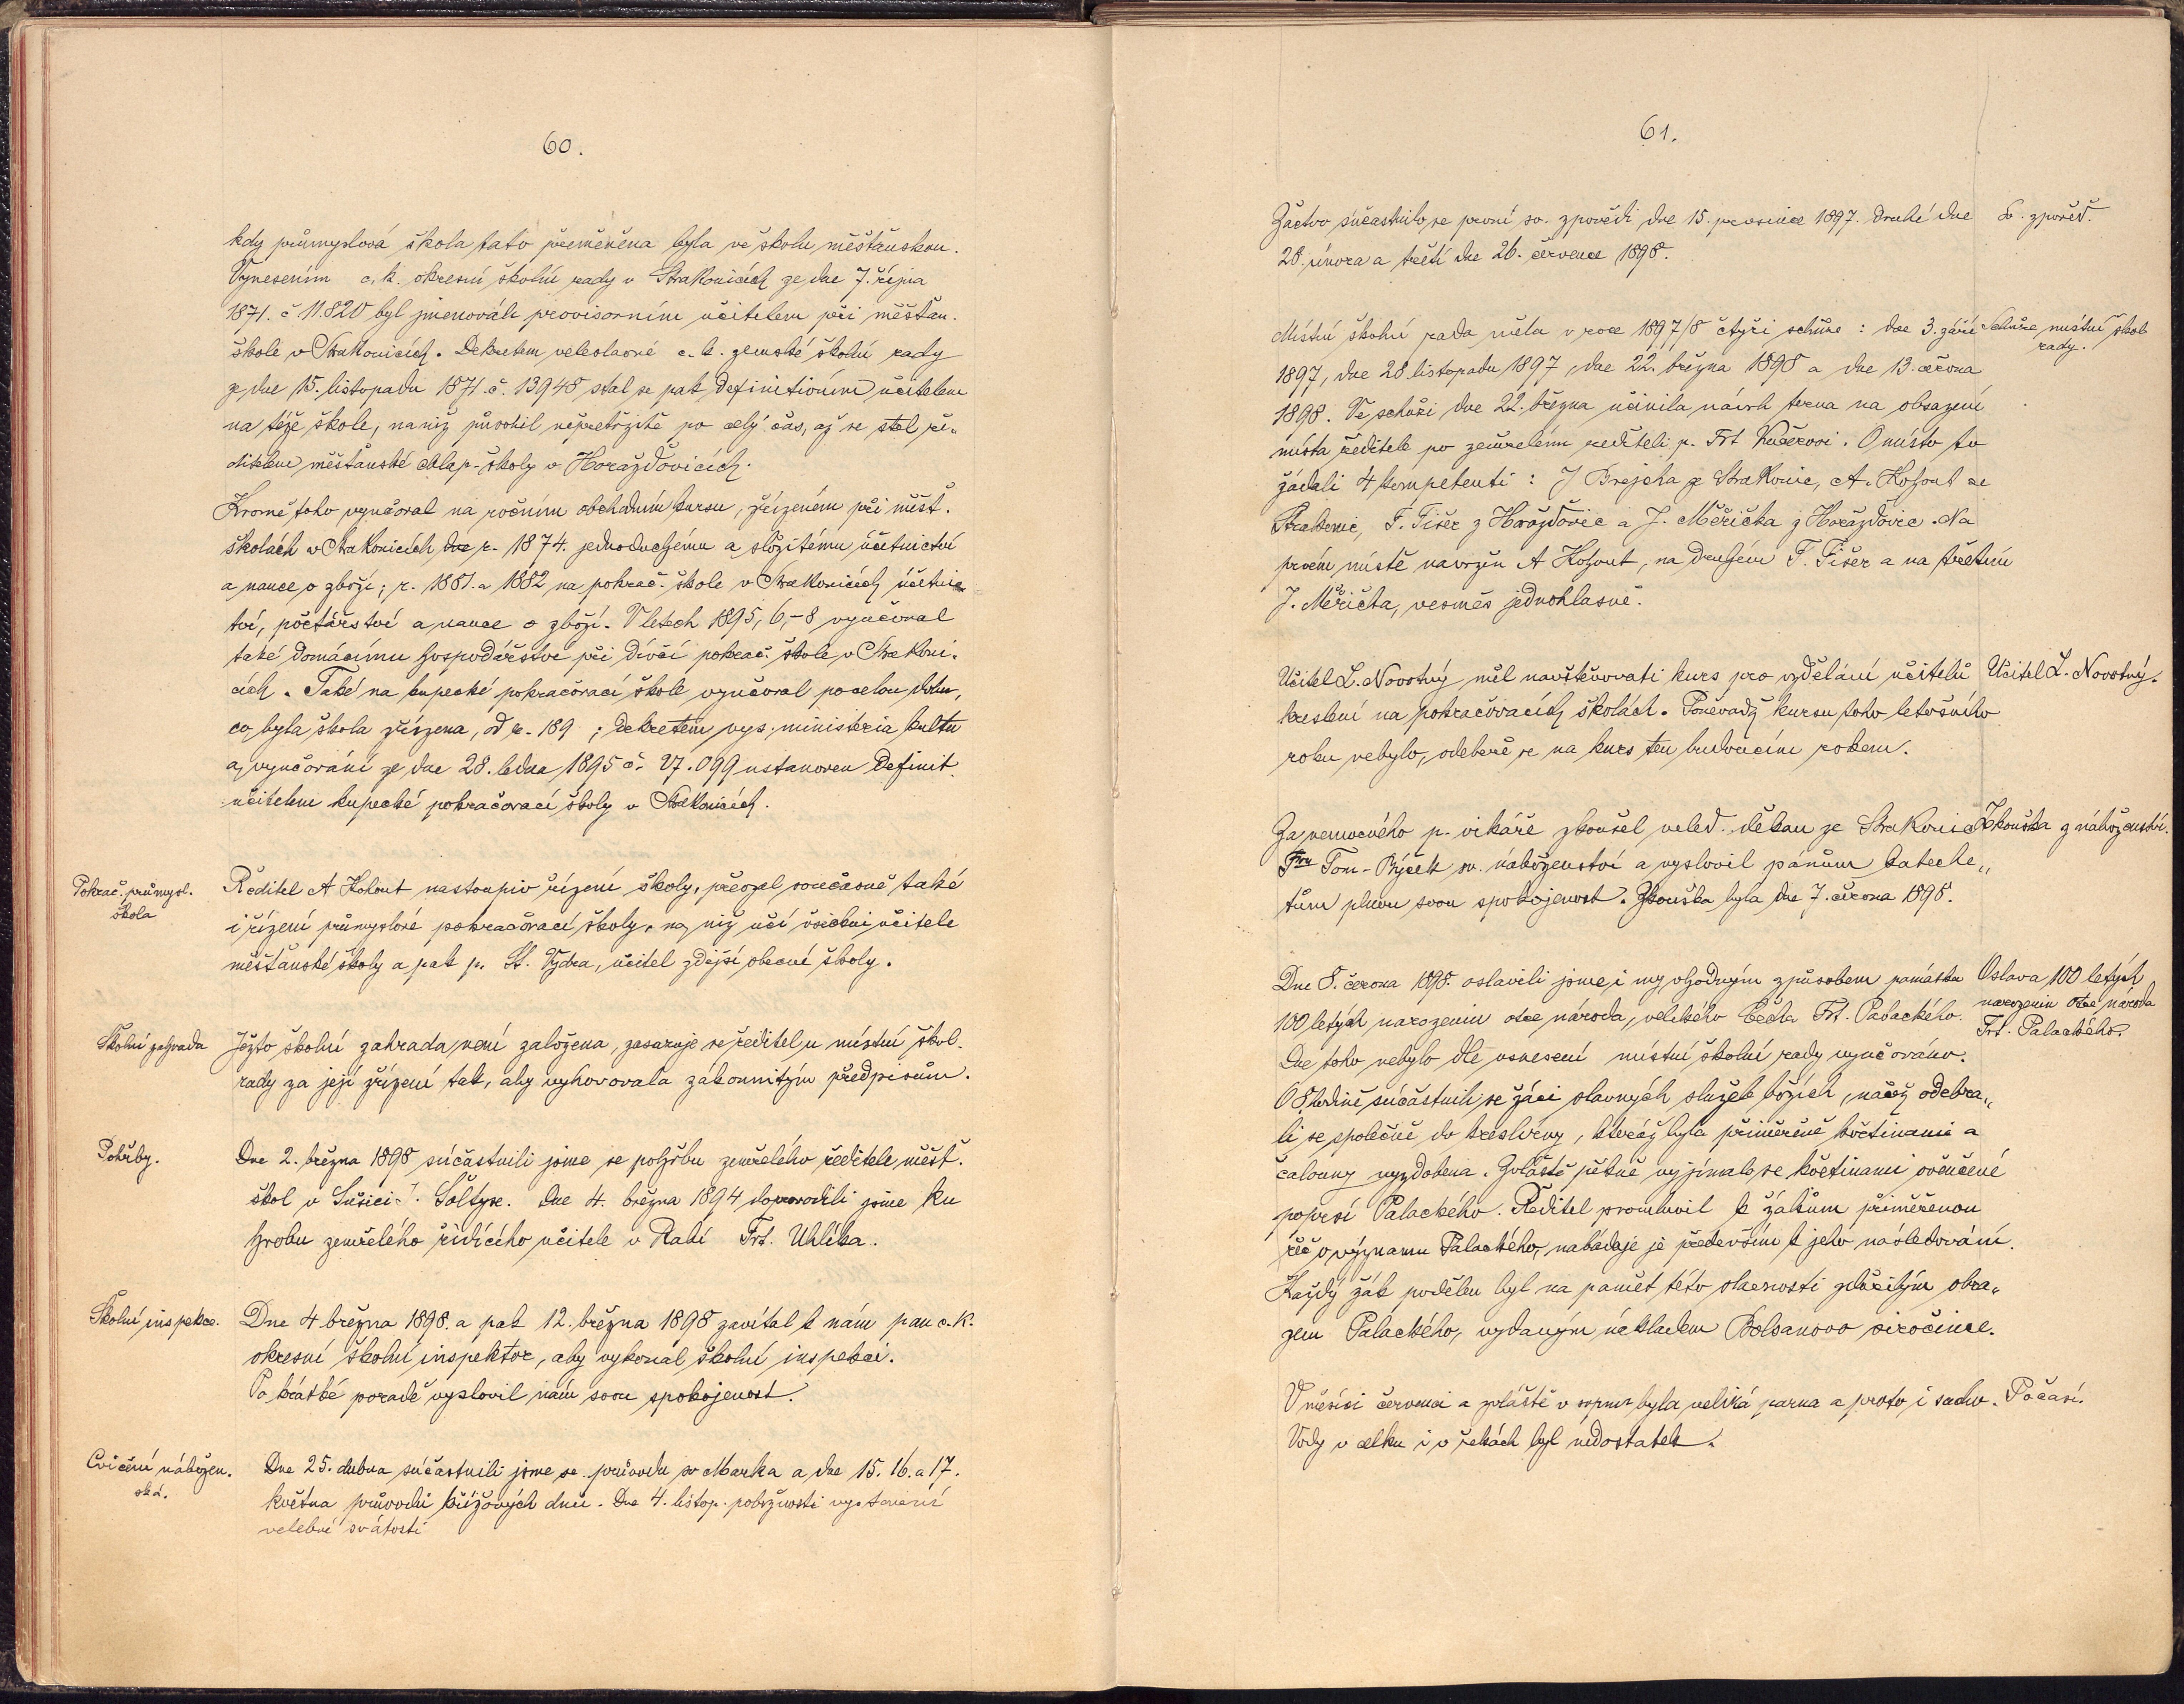 60.
kdy průmyslová škola tato přeměněna byla ve školu měšťanskou.
Vynesením c. k. okresní školní rady v Strakonicích ze dne 7. října
1871. č 11.820 byl jmenován provisorním učitelem při měšťan.
škole v Strakonicích. Dekretem veleslavné c. k. zemské školní rady
ze dne 15. listopadu 1871. č. 13948 stal se pak definitivním učitelem
na téže škole, na níž působil nepřetržitě po celý čas, až se stal ře-
ditelem měšťanské chlap. školy v Horažďovicích.
Kromě toho vyučoval na ročním obchodním kursu, zřízeném při měšť.
školách v Strakonicích dne r. 1874. jednoduchému a složitému účetnictví
a nauce o zboží; r. 1881. a 1882 na pokrač. škole v Strakonicích účetnic-
tví, počtářství a nauce o zboží. V letech 1895, 6,-8 vyučoval
také domácímu hospodářství při dívčí pokrač. škole v Strakoni-
cích. Také na kupecké pokračovací škole vyučoval po celou dobu,
co byla škola zřízena, od r. 189 ; dekretem vys. ministeria kultu
a vyučování ze dne 28. ledna 1895 č. 27.099 ustanoven definit.
učitelem kupecké pokračovací školy v Strakonicích.
Pokrač. průmysl.
škola
Ředitel A Kohout nastoupiv řízení školy, převzal současně také
i řízení průmyslové pokračovací školy, na níž učí všichni učitelé
měšťanské školy a pak p. St. Vydra, učitel zdejší obecné školy.
Školní zahrada
Ježto školní zahrada není založena, zasazuje se ředitel u místní škol.
rady za její zřízení tak, aby vyhovovala zákonnitým předpisům.
Pohřby.
Dne 2. března 1898 súčastnili jsme se pohřbu zemřelého ředitele měšť.
škol v Sušici J. Šoltyse. Dne 4. března 1894 doprovodili jsme ku
hrobu zemřelého řídícího učitele v Rabí Frt. Uhlíka.
Školní inspekce.
Dne 4 března 1898. a pak 12. března 1898 zavítal k nám pan c. k.
okresní školní inspektor, aby vykonal školní inspekci.
Po krátké poradě vyslovil nám svou spokojenost.
Cvičení nábožen.
ská.
Dne 25. dubna súčastnili jsme se průvodu sv Marka a dne 15. 16. a 17.
května průvodů křížových dnů. Dne 4. listop. pobožnosti vystavení
velebné svátosti
61.
Žactvo súčastnilo se první sv. zpovědi dne 15. prosince 1897. druhé dne
28. února a třetí dne 26. července 1898.
Sv. zpověď.
Místní školní rada měla v roce 1897/8 čtyři schůze: dne 3. září
1897, dne 28 listopadu 1897, dne 22. března 1898 a dne 13. června
1898. Ve schůzi dne 22. března učinila návrh terna na obsazení
místa ředitele po zemřelém řediteli p. Frt Kučerovi. O místo to
žádali 4 kompetenti: J Brejcha ze Strakonic, A. Kohout ze
Strakonic, F. Fišer z Horažďovic a J. Měřička z Horažďovic. Na
prvém místě navržen A Kohout, na druhém F. Fišer a na třetím
J. Měřička, vesměs jednohlasně.
Schůze místní škol
rady.
Učitel L. Novotný měl navštěvovati kurs pro vzdělání učitelů
kreslení na pokračovacích školách. Poněvadž kursu toho letošního
roku nebylo, odebeře se na kurs ten budoucím rokem.
Učitel L. Novotný.
Za nemocného p. vikáře zkoušel veled. děkan ze Strakonic
Tom. Rýček sv. náboženství a vyslovil pánům kateche-
tům plnou svou spokojenost. Zkouška byla dne 7. června 1898.
Zkouška z náboženství.
Dne 8. června 1898. oslavili jsme i my vhodným způsobem památku
100 letých narozenin otce národa, velikého Čecha Frt. Palackého.
Dne toho nebylo dle usnesení místní školní rady vyučováno.
O 8 hodině súčastnili se žáci slavných služeb božích, načež odebra-
li se společně do kreslírny, kteráž byla přiměřeně květinami a
čalouny vyzdobena. Zvláště pěkně vyjímalo se květinami ověnčené
poprsí Palackého. Ředitel promluvil k žákům přiměřenou
řeč o významu Palackého, nabádaje je především k jeho následování.
Každý žák podělen byl na paměť této slavnosti zdařilým obra-
zem Palackého, vydaným nákladem Bolzanova sirotčince.
Oslava 100 letých
narozenin otce národa
Frt. Palackého.
V měsíci červenci a zvláště v srpnu byla veliká parna a proto i sucho.
Vody v celku i v řekách byl nedostatek.
Počasí.